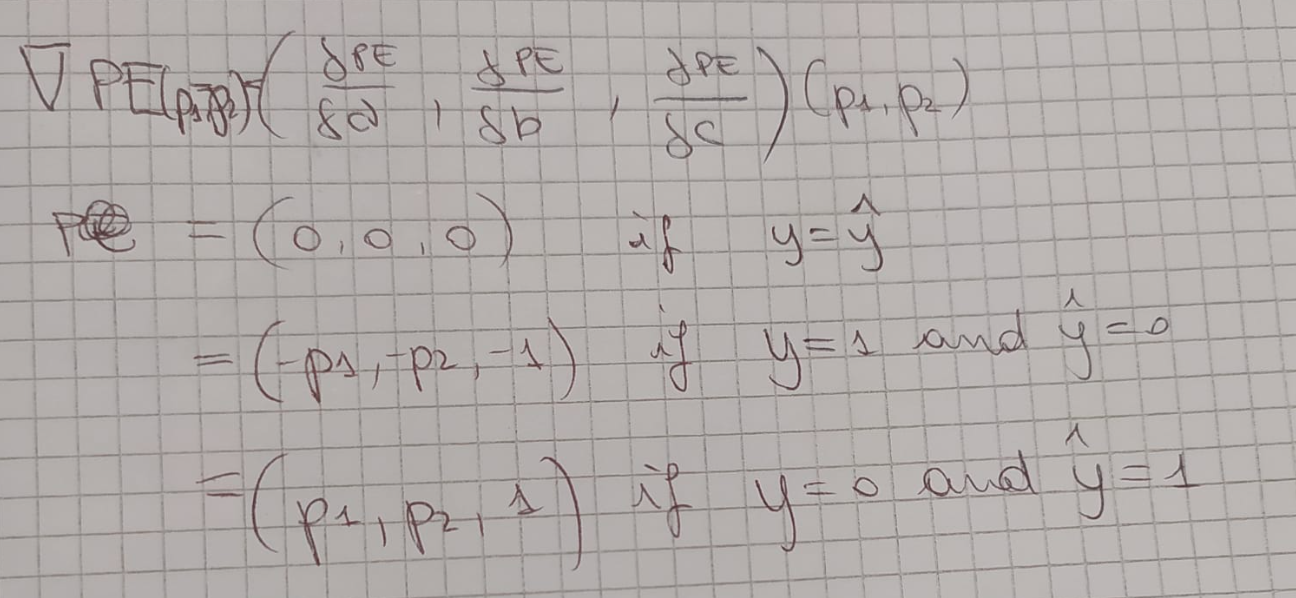 ∇ PE(p1,p2)=(δPE/δa, δPE/δb, δPE/δc)(p1,p2)
= (0,0,0) if y=ŷ
= (-p1,-p2,-1) if y=1 and ŷ=0
= (p1,p2,1) if y=0 and ŷ=1